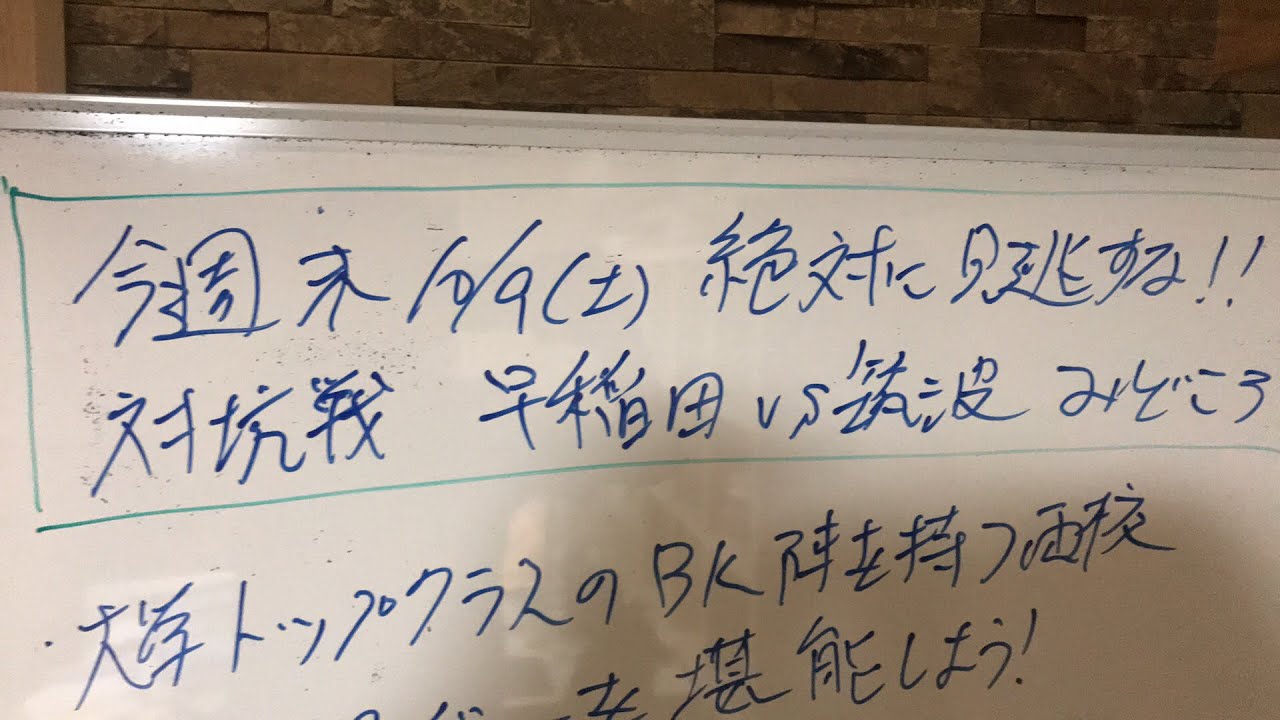 今週末 10/9(土) 絶対に見逃するな!!
対抗戦 早稲田 vs 筑波 みどころ
・大学トップクラスのBK陣を持つ両校
を堪能しよう!